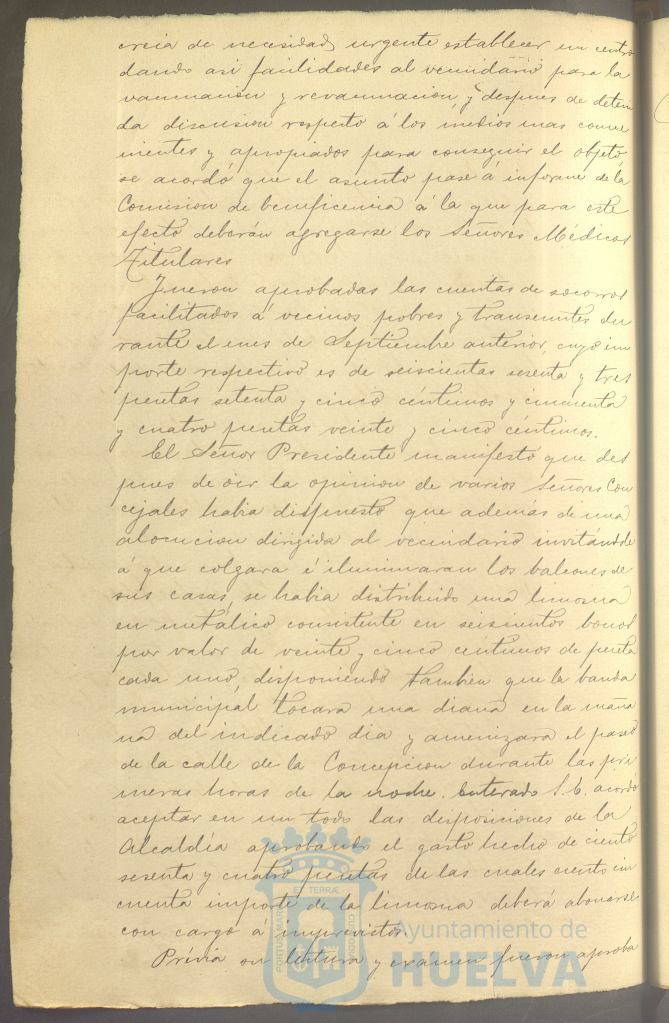 creia de necesidad urgente establecer un centro
dando asi facilidades al vecindario para la
vacunacion y revacunacion, y despues de deteni
da discusion respecto á los medios mas conve
nientes y apropiados para conseguir el objeto
se acordó que el asunto pase á informe de la
Comision de beneficencia á la que para este
efecto deberán agregarse los Señores Médicos
Titulares
Fueron aprobadas las cuentas de socorros
facilitados á vecinos pobres y transeuntes du
rante el mes de Septiembre anterior, cuyo im
porte respectivo es de seiscientas sesenta y tres
pesetas setenta y cinco céntimos y cincuenta
y cuatro pesetas veinte y cinco céntimos.
El Señor Presidente manifestó que des
pues de oir la opinion de varios Señores Con
cejales habia dispuesto que además de una
alocucion dirigida al vecindario invitándole
á que colgara é iluminaran los balcones de
sus casas, se habia distribuido una limosna
en metálico consistente en seiscientos bonos
por valor de veinte y cinco céntimos de peseta
cada uno, disponiendo tambien que la banda
municipal tocara una diana en la maña
na del indicado dia y amenizara el paseo
de la calle de la Concepcion durante las pri
meras horas de la noche. Enterado S.E. acordó
aceptar en un todo las disposiciones de la
Alcaldía aprobando el gasto hecho de ciento
sesenta y cuatro pesetas de las cuales ciento cin
cuenta importe de la limosna deberá abonarse
con cargo á imprevistos.
Prévia su lectura y examen fueron aproba
PORTUS MARIS ET TERRÆ CUSTODIA
Ayuntamiento de
HUELVA